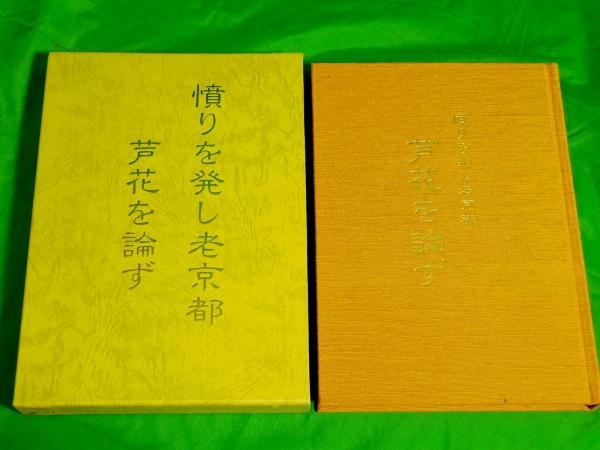 憤りを発し老京都
芦花を論ず
憤りを発し老京都
芦花を論ず